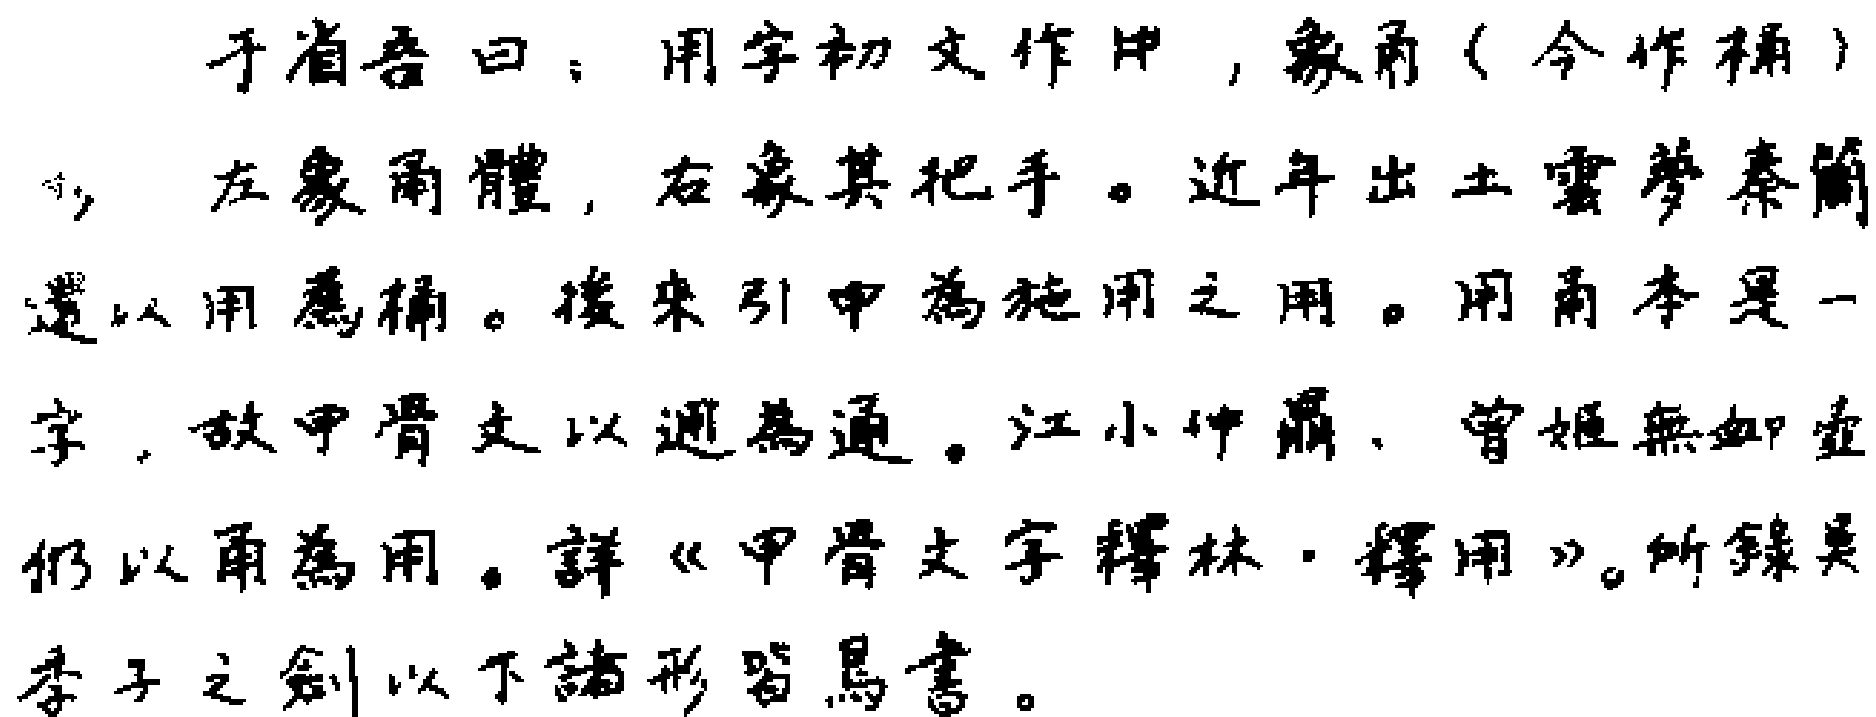 于省吾曰：用字初文作㘡，象甬（今作桶）
，左象甬體，右象其把手。近年出土雲夢秦簡
還以用爲桶。後來引申爲施用之用。用甬本是一
字，故甲骨文以迵爲通。江小仲鼎、曾姬無卹壺
仍以甬爲用。詳《甲骨文字釋林·釋用》。所錄吴
季子之劍以下諸形皆鳥書。